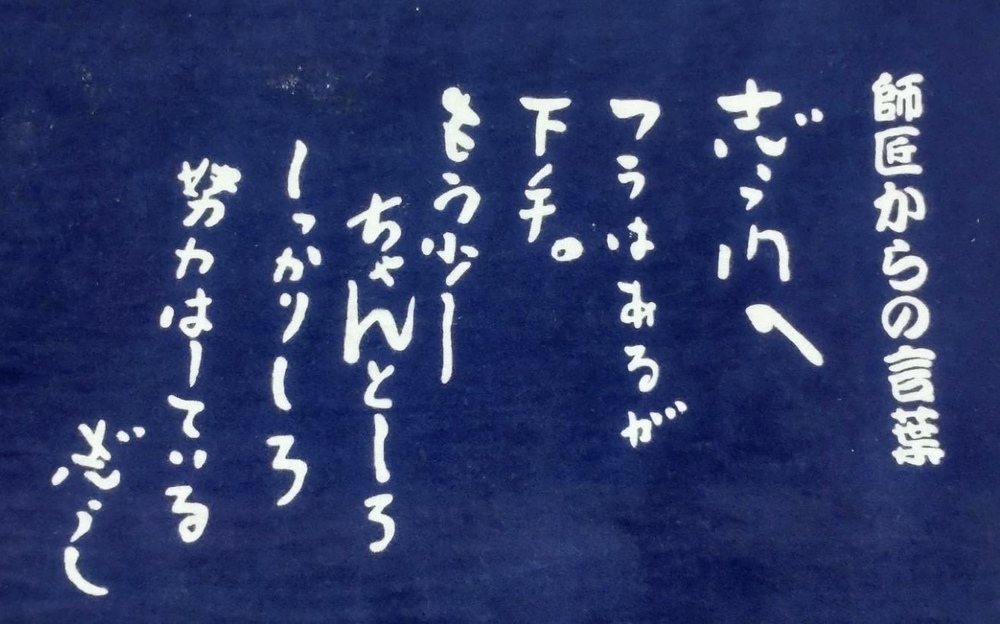 師匠からの言葉
志ら乃へ
フラはあるが
下手。
もう少し
ちゃんとしろ
しっかりしろ
努力はしている
志らく